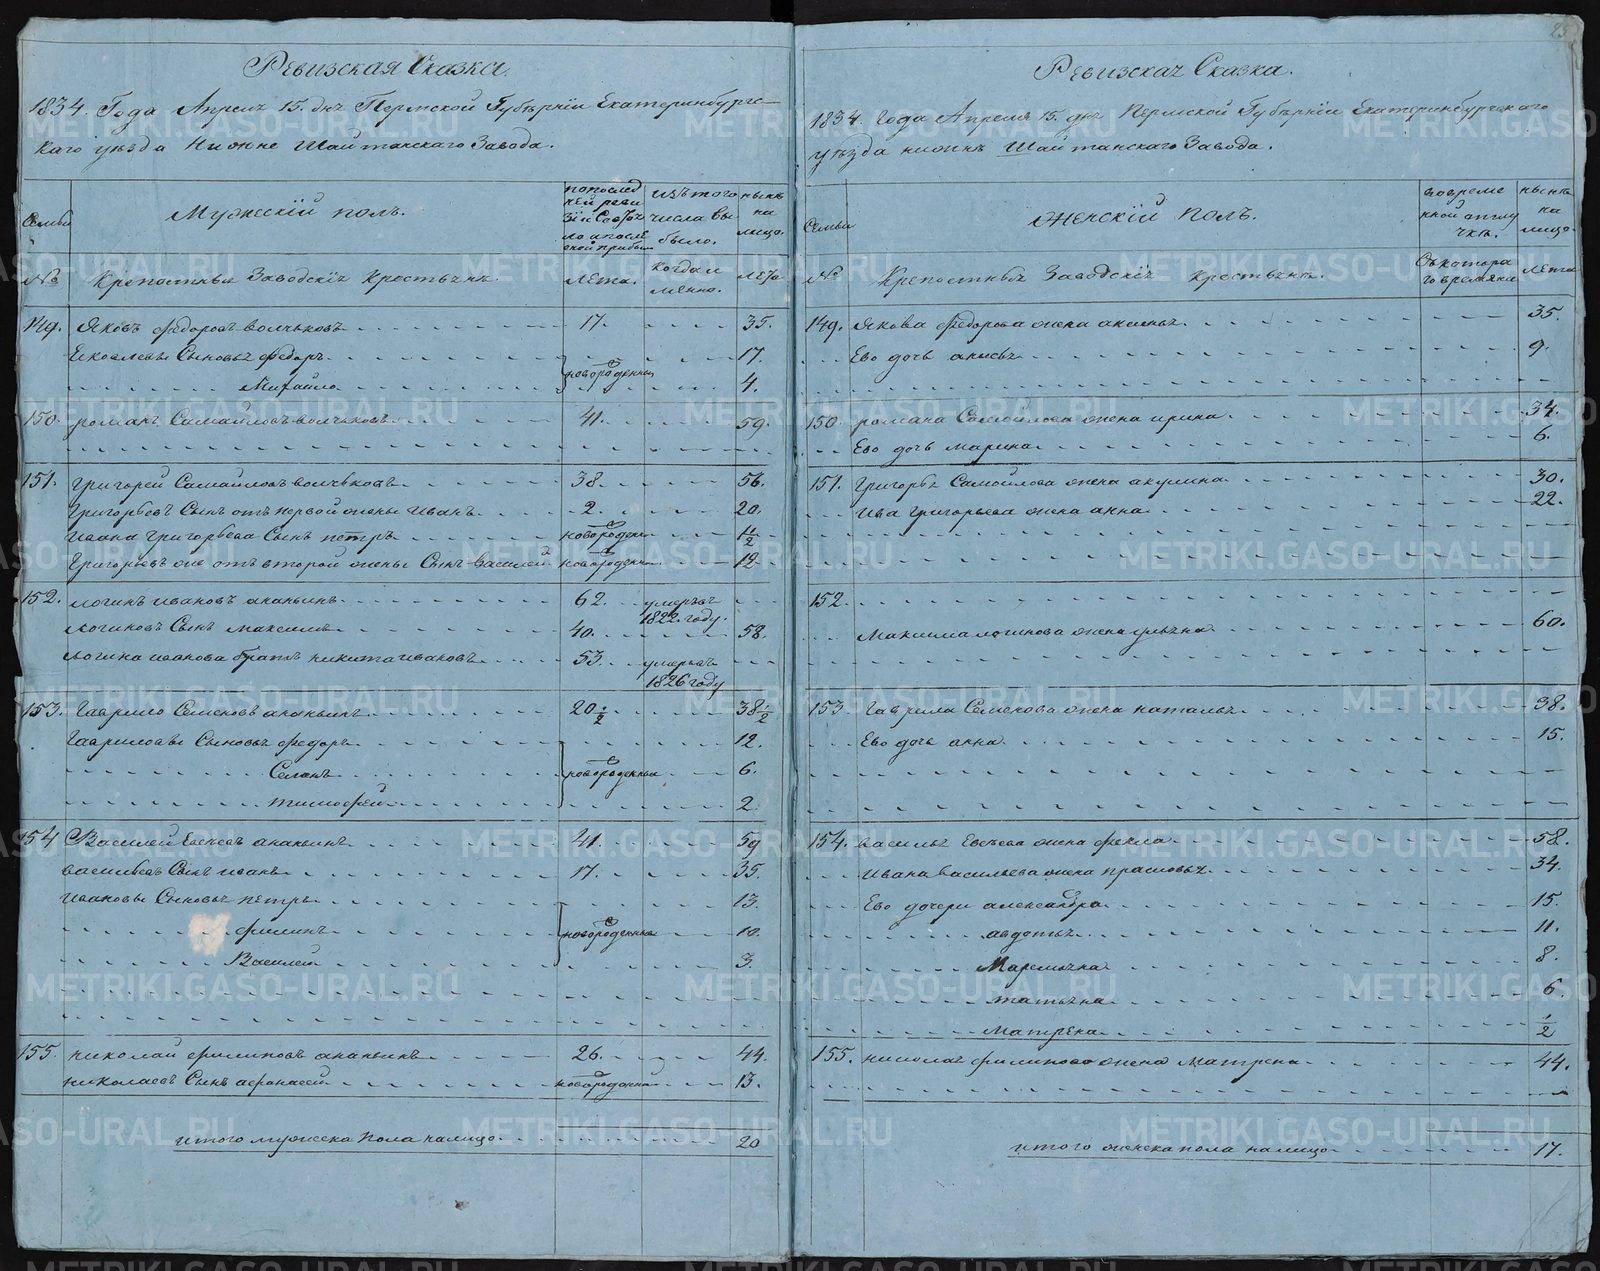 Ревизская Сказка.
1834. Года Апреля 15. дня Пермской Губѣрнїи Екатеринбургс-
каго уѣзда Нижне Шайтанскаго Завода.
Семьи
Мужескїй полъ.
попослед
ней реви
зїи Состоя
ло апосле
оной прибыло
изъ того
числа вы
было.
нынѣ
на
лицо.
№
Крепостныя Заводскїя крестьяня.
лета.
когда и
менно.
лета
149. Яковъ федоровъ волчьковъ 17. 35.
Екоѳлевы Сыновья федоръ 17.
новорожденны
Михайло 4.
150. романъ Самайловъ волчьковъ 41. 59.
151. Григорей Самайловъ волчьковъ 38. 56.
Григорьевъ Сынъ отъ первой жены Иванъ 2. 20.
Ивана Григорьева Сынъ петръ новорожден 1/2
Григорьевъ же отъ второй жены Сынъ Василей новорожден 12
152. логинъ ивановъ ананьинъ 62. умеръ въ
1822. году.
логиновъ Сынъ максимъ 40. 58.
логина иванова братъ никита ивановъ 53. умеръ въ
1826 году
153. Гаврило Семеновъ ананьинъ 20 1/2 38 1/2
Гавриловы Сыновья федоръ 12.
Семенъ новорожденныя 6.
тимофей 2
154 Василей Евсеевъ ананьинъ 41. 59
васильевъ Сынъ иванъ 17. 35.
ивановы Сыновья петръ 13.
филипъ новорожденныя 10.
Василей 3.
155. николай филиповъ ананьинъ 26. 44.
николаевъ Сынъ афонасей новорожденной 13.
итого мужеска пола налицо 20
Ревизская Сказка.
1834. Года Апреля 15. дня Пермской Губѣрнїи Екатеринбургскаго
уѣзда нижнѣ Шайтанскаго Завода.
Семьи
Женскїй полъ.
вовреме
нной отлу
чкѣ.
нынѣ
на
лицо.
№
Крепостныя Заводскїя крестьяня.
Съкотора
го времяни
лета
149. Якова федорова жена аксинья 35.
Ево дочь анисья 9.
150. романа Самойлова жена ирина 34.
Ево дочь марина 6.
151. Григорья Самойлова жена акулина 30.
Ива Григорьева жена анна 22.
152.
Максима логинова жена ульяна 60.
153. Гаврила Семенова жена наталья 38.
Ево дочь анна 15.
154. василья Евсеева жена фекла 58.
Ивана васильева жена прасковья 34.
Ево дочери александра 15.
авдотья 11.
Маремьяна 8.
татьяна 6.
Матрена 1/2
155. николая филипова жена Матрена 44.
итого женска пола налицо 17.